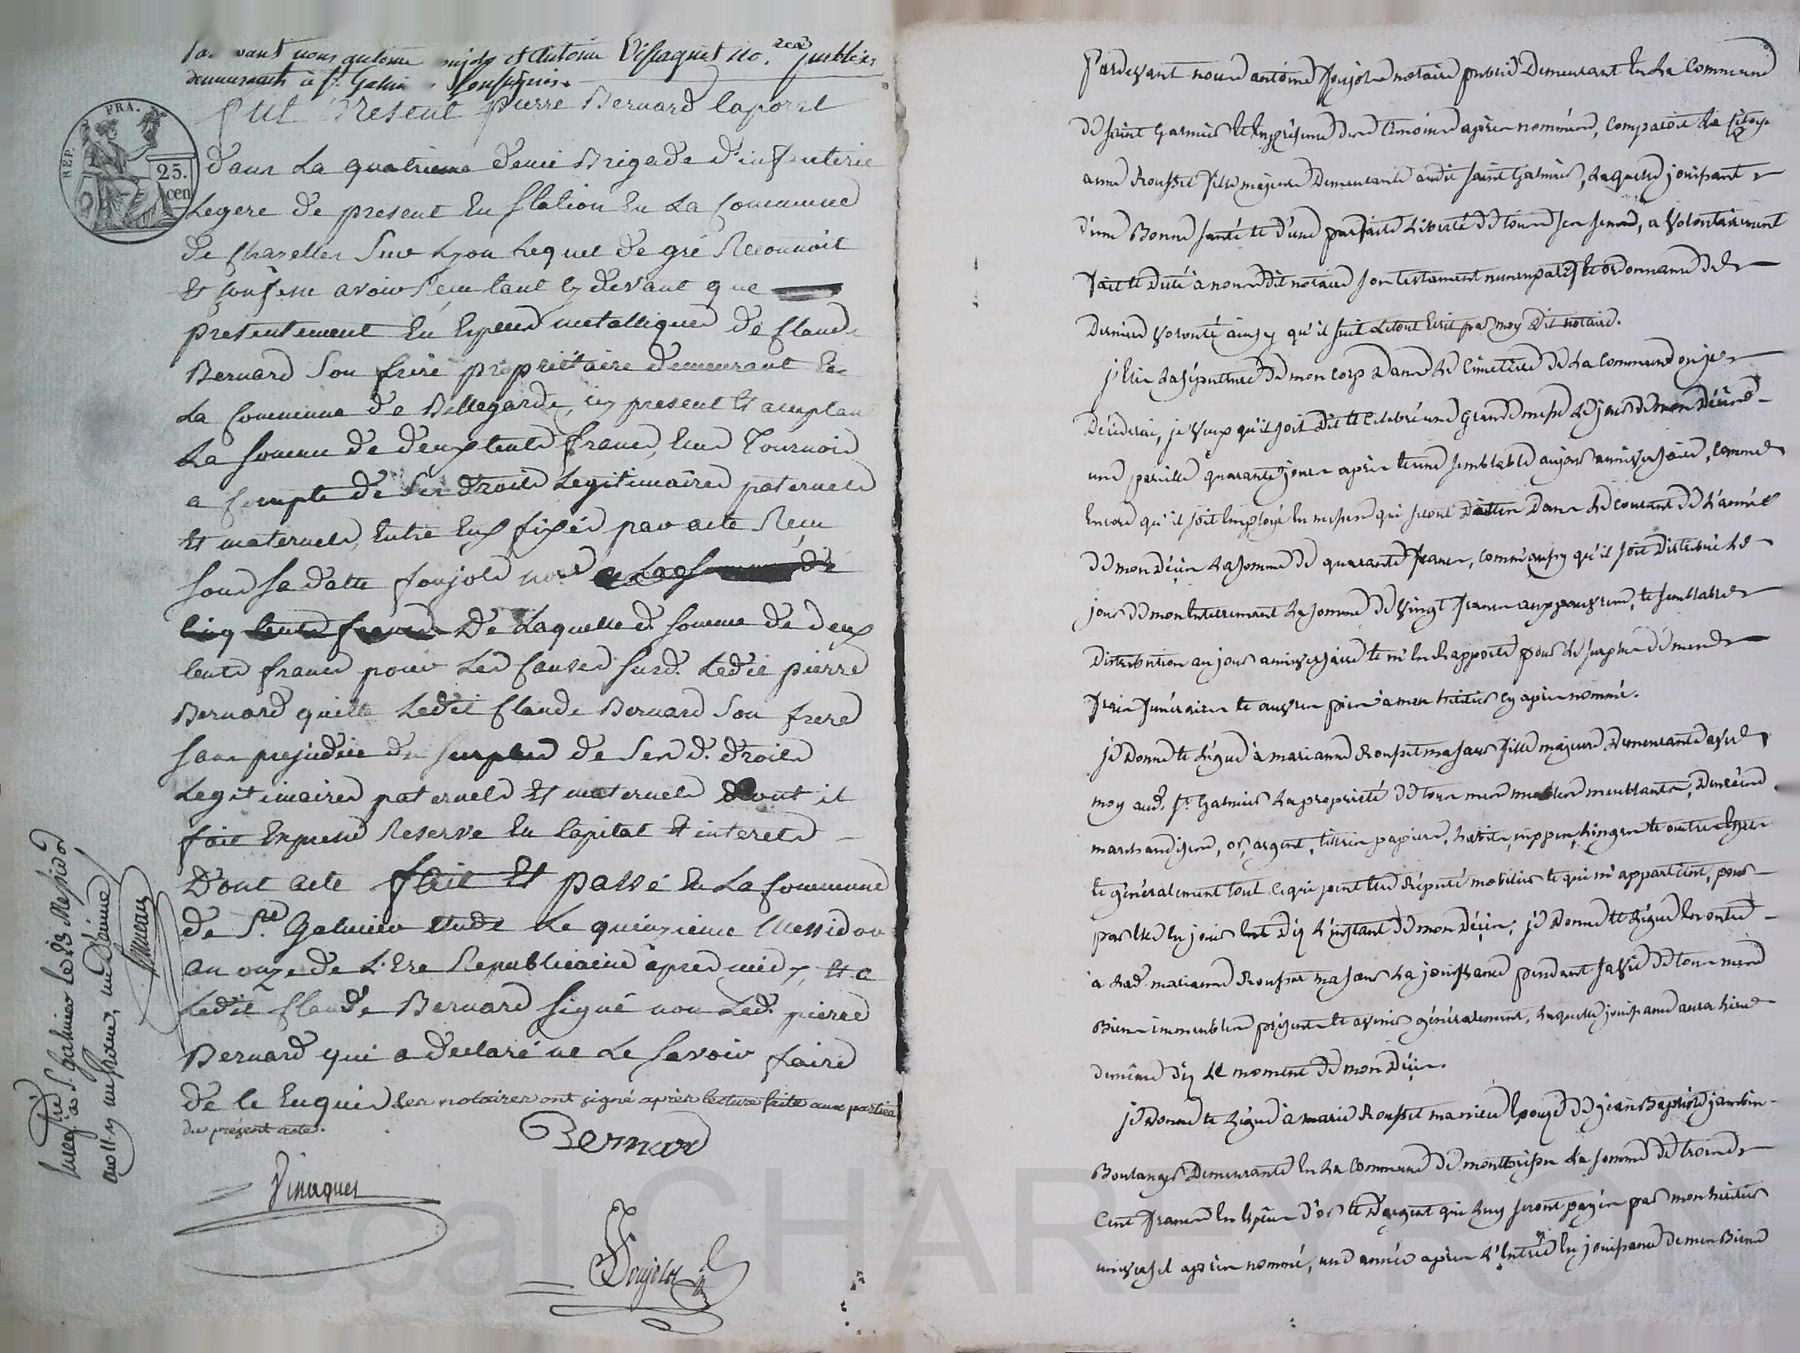 Par devant nous antoine et Antoine Vissaguet no.res publics
demeurants à St. Galmier, soussignés.
fut Present Pierre Bernard Caporal
dans La quatrieme demie Brigade d'infenterie
Legere de present En station En La Commune
de Chazelles Sur Lyon Lequel de gré Reconnoit
Et Confesse avoir Reçu tant cy devant que
presentement En Especes metalliques de Claude
Bernard Son frere propriétaire demeurant En
La Commune de Bellegarde, icy present Et acceptant
La Somme de deux Cents francs, Tournois
a Compte de Ses droits Legitimaires paternels
Et maternels, Entre Eux fixés par acte Reçu
Sous Sa date Joujols no.re
De Laquelle d. Somme de deux
Cents francs pour Les Causes Susd. Ledit pierre
Bernard quitte Ledit Claude Bernard Son frere
Sans prejudice du Surplus de Ses d. droits
Legitimaires paternels Et maternels dont il
fait Expresse Reserve En Capital Et interets
Dont acte fait Et passé En La Commune
de St. Galmier Etude Le quinzieme Messidor
an onze de L'Ere Republicaine apres midy, Et a
Ledit Claude Bernard Signé non Led. pierre
Bernard qui a declaré ne Le Savoir faire
de ce Enquis les notaires ont signé après lecture faite aux parties
du présent acte.
Bernard
Joujols
à St. galmier Le Messidor
an 11
REP. FRA.
25.
cen
Pardevant nous antoine Joujols notaire public Demeurant En La Commune
de Saint Galmier Et En présence des témoins après nommés, Comparoit La Citoyenne
anne Rousset fille majeure Demeurante audit Saint Galmier, Laquelle jouissant
d'une Bonne santé et d'une parfaite Liberté de tous ses sens, a volontairement
fait et dicté à nous dit notaire son testament nuncupatif et ordonnance de
derniere volonté ainsy qu'il suit Letout Ecrit par moy dit notaire.
j'Elis La sépulture de mon corp Dans Le Cimetière de La Commune ou je
Décéderai, je veux qu'il soit Dit et Célébré une Grand messe Le jour de mon Décès
une pareille quarante jours après et une semblable au jour anniversaire, Comme
Encore qu'il soit Employé En messes qui seront Dittes Dans Le Courant de L'année
de mon Décès La somme de quarante francs, Comme aussy qu'il soit Distribué Le
jour de mon Enterrement La somme de vingt francs aux pauvres, et semblable
Distribution au jour anniversaire et m'En Rapporte pour Le surplus de mes
frais funéraires et œuvres pies à mon héritier cy après nommé.
je Donne et Légue à marianne Rousset ma sœur fille majeure Demeurante avec
moy aud. St. Galmier La propriété de tous mes meubles meublants, Denrées
marchandises, or, argent, titres papiers, habits, nippes, Linges et autres Effets
et généralement tout Ce qui peut Etre Réputé mobilier et qui m'appartient, pour
par Elle En jouir Dès L'instant de mon Décès; je Donne et Légue En outre
à Lad. marianne Rousset ma sœur La jouissance pendant sa vie de tous mes
Biens immeubles présents et avenir généralement, Laquelle jouissance aura Lieu
de même Dès Le moment de mon Décès.
je Donne et Légue à marie Rousset ma niece Epouse de jean Baptiste jambin
Boulanger Demeurante En La Commune de montbrison La somme de trois
Cent francs En Espèces d'or et d'argent qui Luy seront payés par mon héritier
universel après nommé, une année après L'Entrée En jouissance de mes Biens
Pascal CHAREYRON